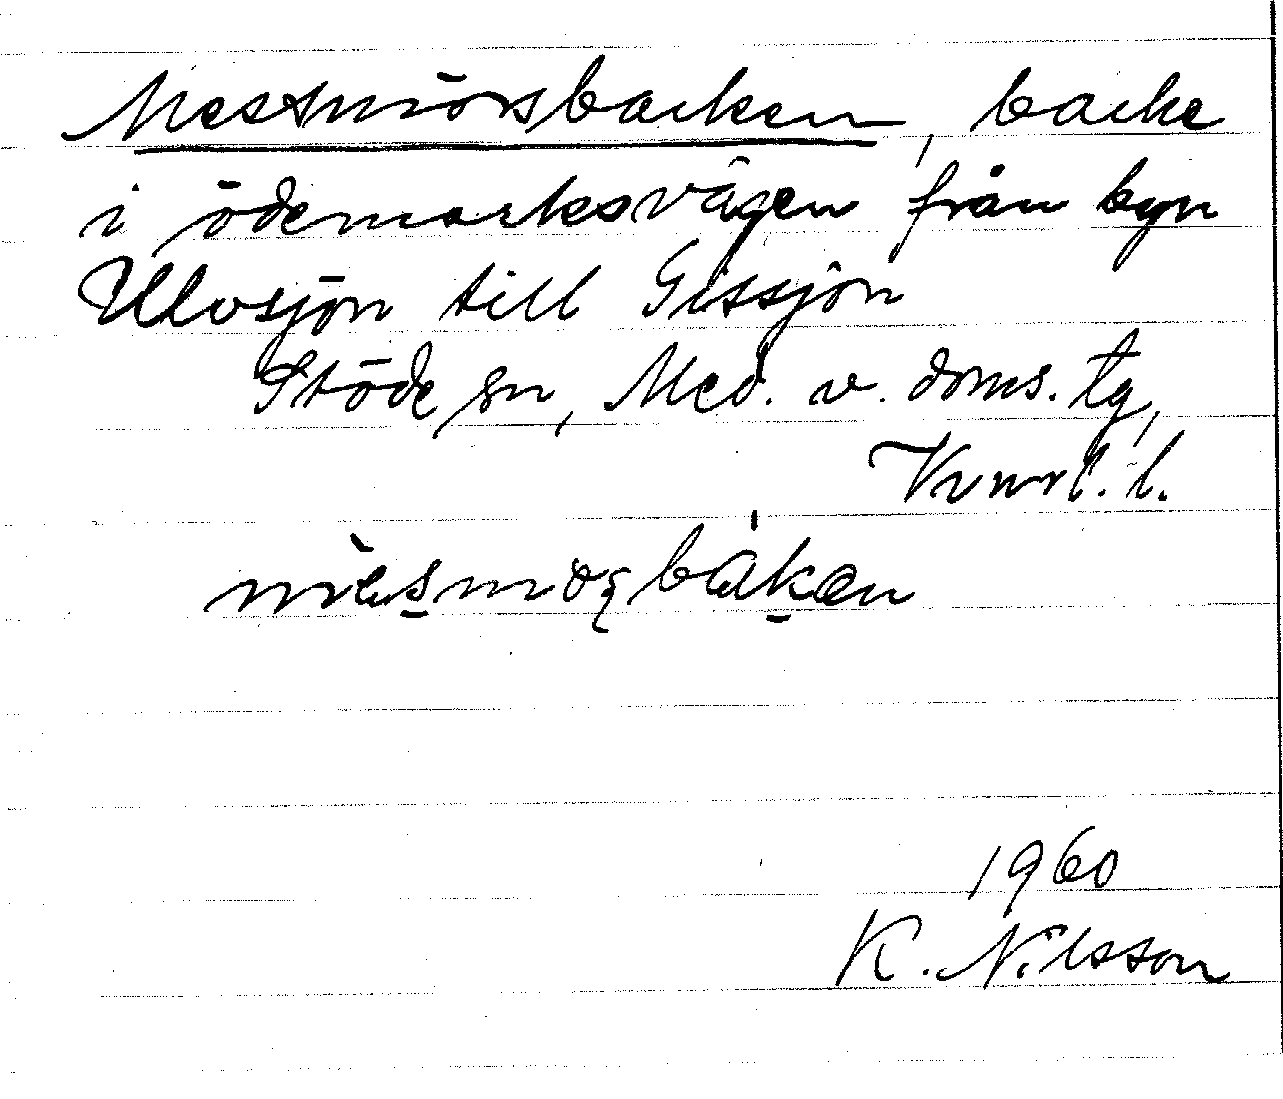 Mestmörsbacken, backe
i ödemarksvägen från byn
Ulvsjön till Gissjön
Stöde sn, Med. v. doms. tg,
Vvnrl. l.
1960
K. Nilsson